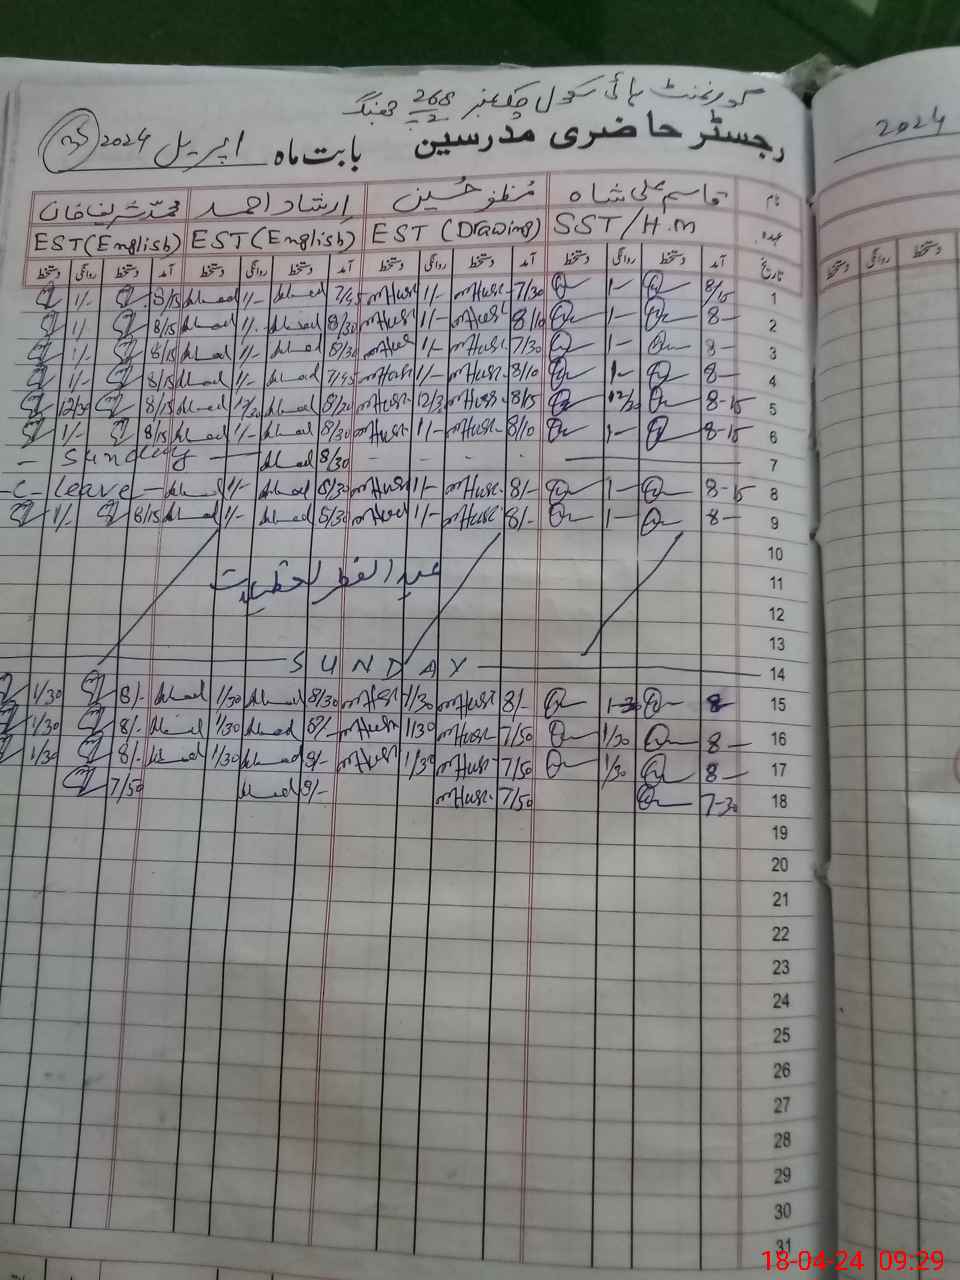 گورنمنٹ ہائی سکول چک نمبر 268 ج ب جھنگ
رجسٹر حاضری مدرسین بابت ماہ اپریل 2024
2024
نام قاسم علی شاہ مظفر حسین ارشاد احمد محمد شریف خان
عہدہ SST/H.M EST (Drawing) EST (English) EST (English)
تاریخ آمد دستخط روانگی دستخط آمد دستخط روانگی دستخط آمد دستخط روانگی دستخط آمد دستخط روانگی دستخط
دستخط روانگی دستخط
1 8/15 1- mHusr 7/30 1/- mHusr Ahmad 1/- Ahmad 8/15 1/-
2 8- 1- 8/10 mHusr 1/- mHusr 8/30 Ahmad 1/- Ahmad 8/15 1/-
3 8- 1- 7/30 mHusr 1/- 8/30 Ahmad 1/- Ahmad 8/15 1/-
4 8- 1- 8/10 mHusr 1/- mHusr 7/45 Ahmad 1/- Ahmad 8/15 1/-
5 8-15 12/30 8/15 mHusr 12/30 mHusr Ahmad Ahmad 8/15 12/30
6 8-15 1- 8/10 mHusr 1/- mHusr 8/30 Ahmad 1/- Ahmad 8/15 1/-
7 8/30 Ahmad — Sunday —
8 8-15 1- 8/- mHusr 1/- mHusr 8/30 Ahmad 1/- Ahmad – C- Leave –
9 8- 1- 8/- mHusr 1/- Ahmad 1/- Ahmad 8/15 1/-
10
11 عید الفطر تعطیلات
12
13
14 SUNDAY
15 8- 1-30 8/- mHusr 1/30 mHusr 8/30 Ahmad 1/30 Ahmad 8/- 1/30
16 8- 1/30 7/50 mHusr 1/30 mHusr 8/- Ahmad 1/30 Ahmad 8/- 1/30
17 8- 1/30 7/50 mHusr 1/30 mHusr 9/- Ahmad 1/30 Ahmad 8/- 1/30
18 7-30 7/50 mHusr 9/- Ahmad 7/50
19
20
21
22
23
24
25
26
27
28
29
30
31
18-04-24 09:29